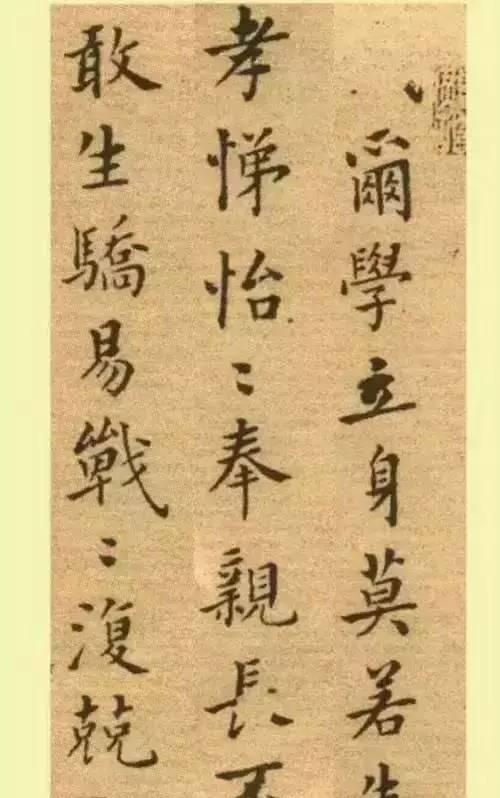 爾學立身莫若先
孝悌怡〻奉親長不
敢生驕易戰〻復兢